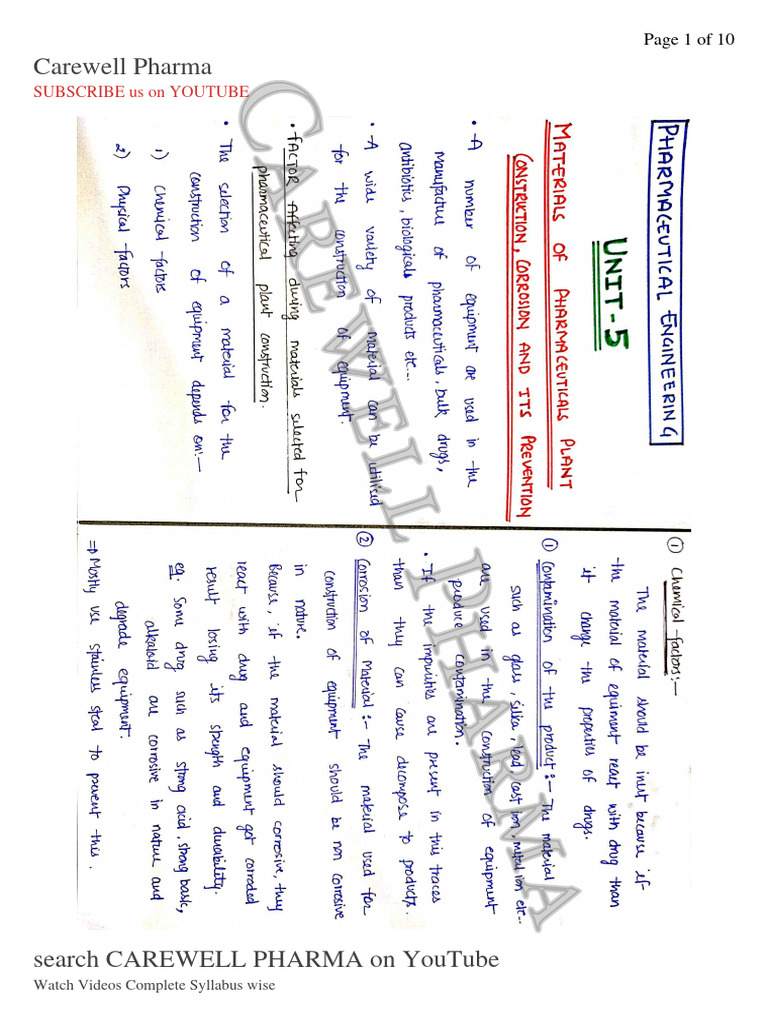 Page 1 of 10
Carewell Pharma
SUBSCRIBE us on YOUTUBE
PHARMACEUTICAL ENGINEERING
UNIT-5
MATERIALS OF PHARMACEUTICALS PLANT
CONSTRUCTION, CORROSION AND ITS PREVENTION
• A number of equipment are used in the
manufacture of pharmaceuticals, bulk drugs,
antibiotics, biologicals products etc...
• A wide variety of material can be utilised
for the construction of equipment.
• FACTOR Affecting during materials selected for
pharmaceutical plant construction.
• The selection of a material for the
construction of equipment depends on:—
1) Chemical factors
2) Physical factors
① Chemical factors:—
The material should be inert because if
the material of equipment react with drug than
it change the properties of drugs.
① Contamination of the product:— The material
such as glass, silica, lead, cast iron, metal ion etc...
are used in the construction of equipment
produce contamination.
• If the impurities are present in this traces
than they can cause decompose to products.
② Corrosion of Material:— The material used for
construction of equipment should be non corrosive
in nature.
Because, if the material should corrosive, they
react with drug and equipment got corroded
result losing its strength and durability.
eg. Some drug such as strong acid, strong basic,
alkaloid are corrosive in nature and
degrade equipment.
⇒ Mostly use stainless steal to prevent this.
CAREWELL PHARMA
search CAREWELL PHARMA on YouTube
Watch Videos Complete Syllabus wise